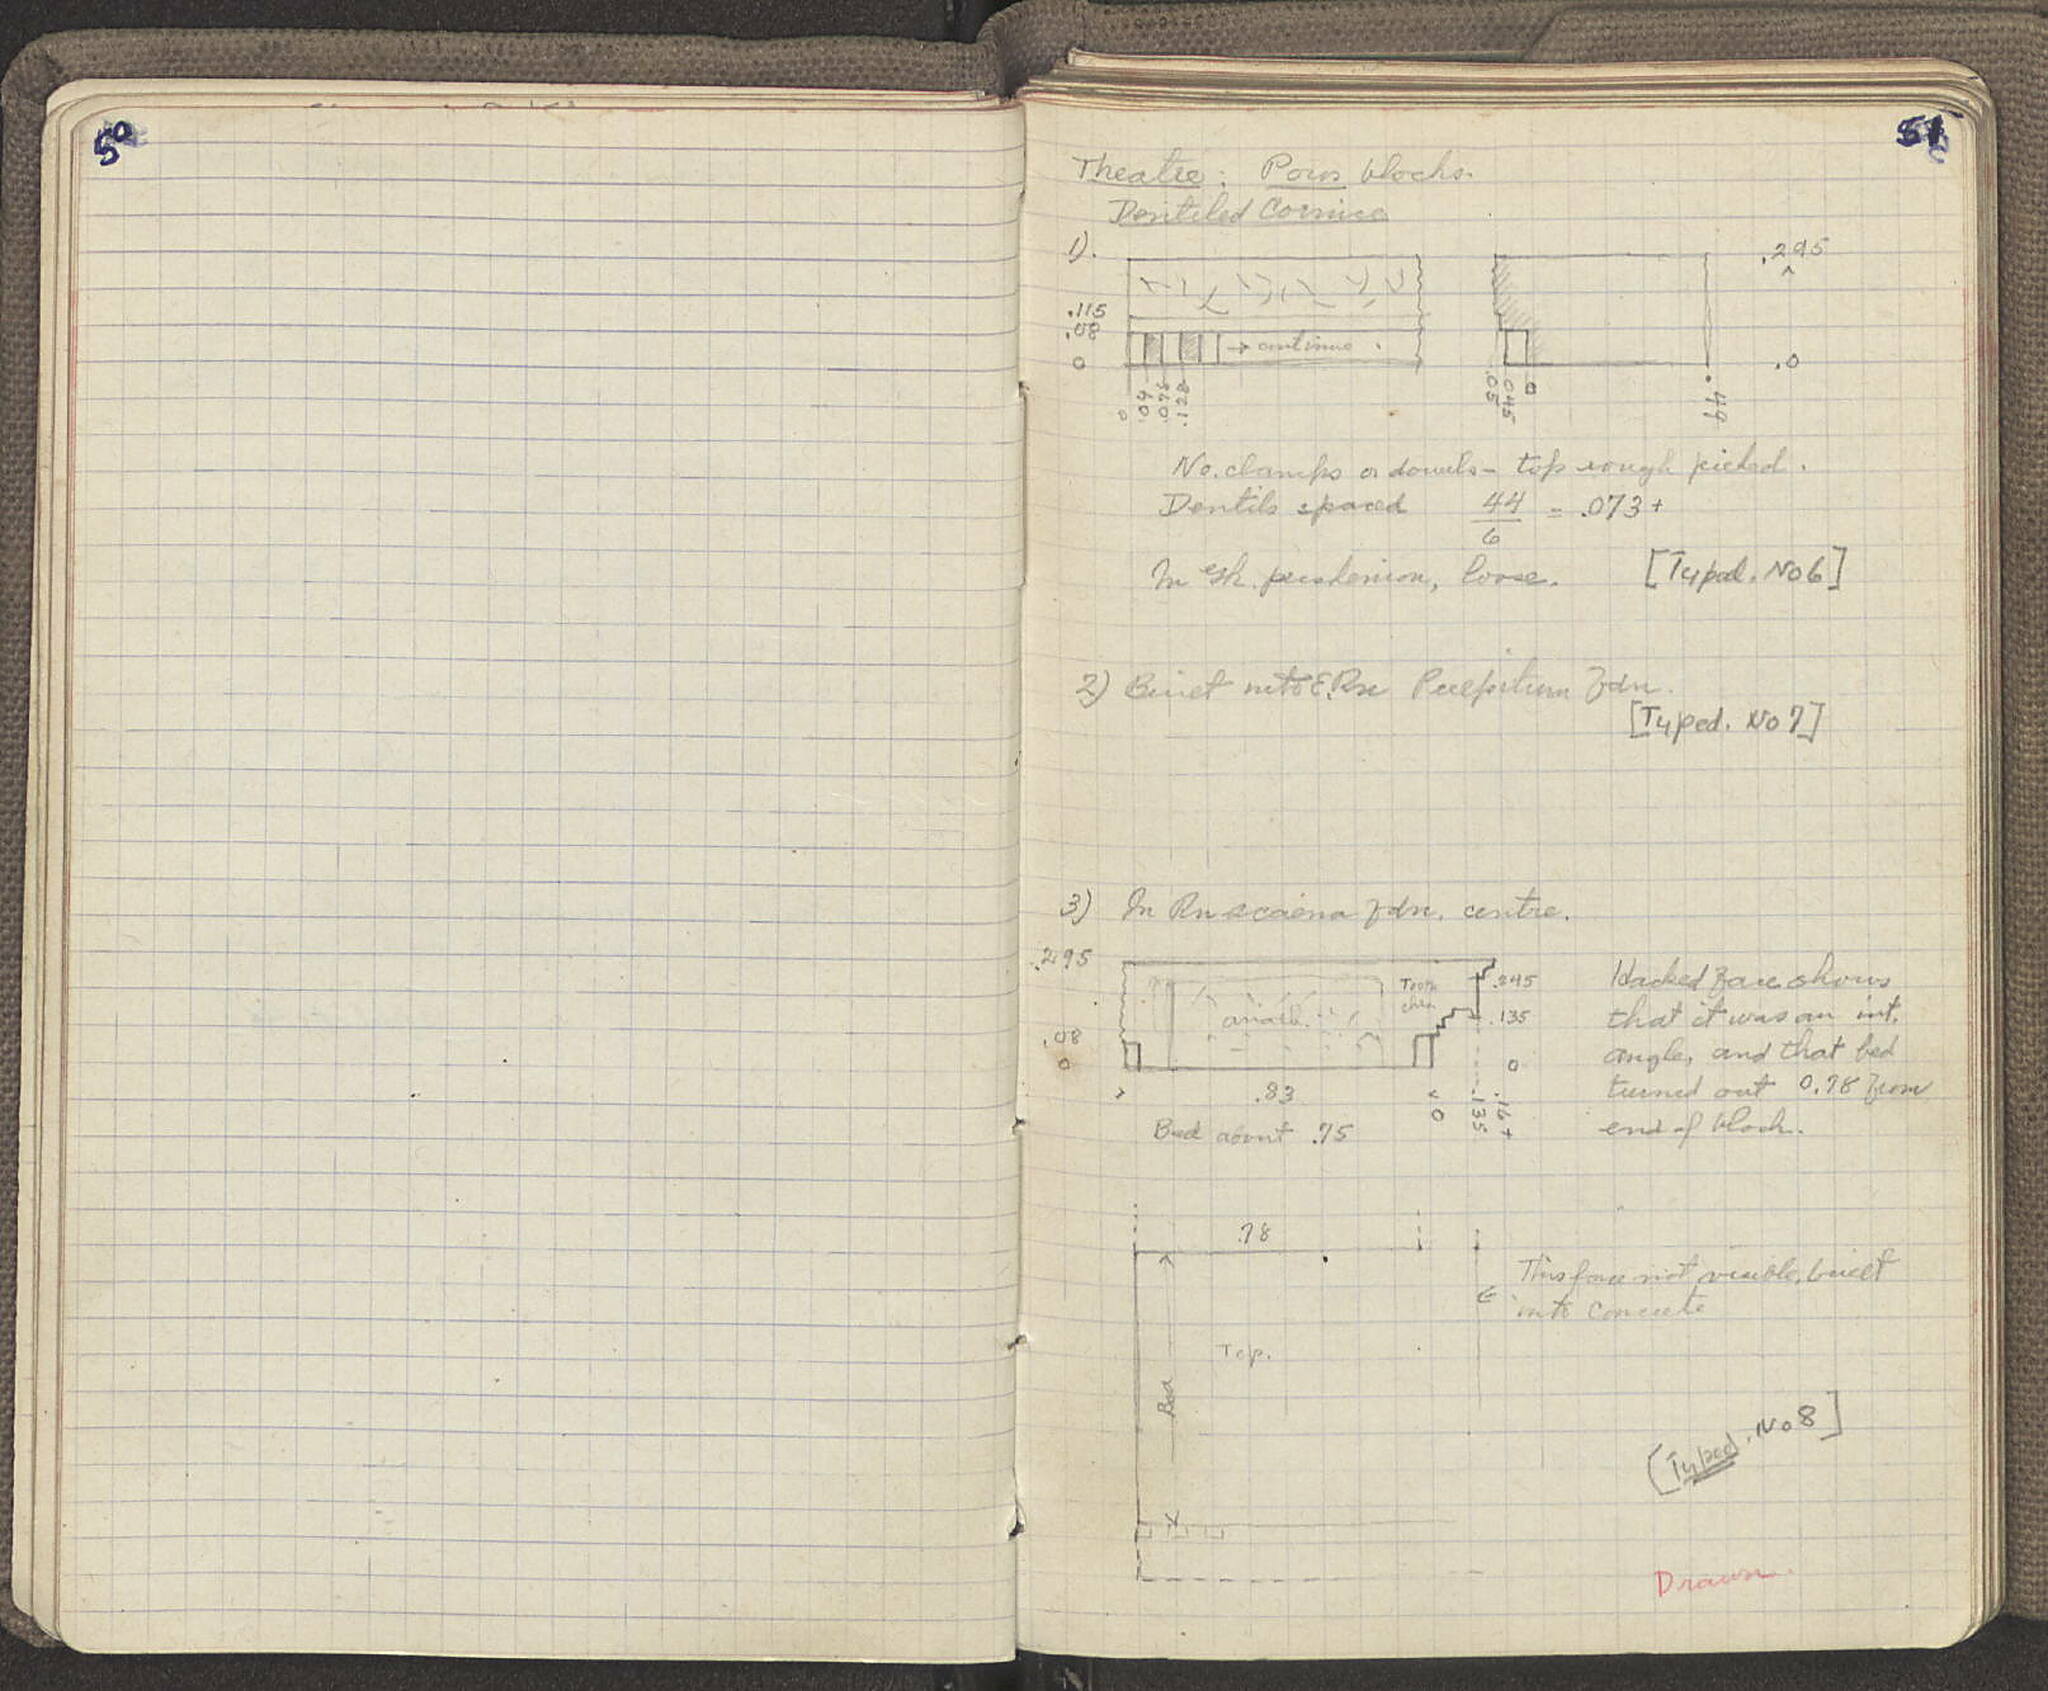 50
51
Theatre: Poros blocks.
Dentiled Cornice
1).
.295
.115
.08
0
→ continue .
.0
0
.04
.075
.128
.05
.045
0
.44
No. clamps or dowels – top rough picked.
Dentils spaced 44/6 = .073+
In Gk. proskenion, loose. [Typed. No 6]
2) Built into E. Rn Pulpitum Fdn.
[Typed. No 7]
3) In Rn scaena Fdn. centre.
.295
Tooth
chis
.245
.135
.08
0
0
.83
0
.135
.16+
Bed about .75
Hacked Face shows
that it was an int.
angle, and that bed
turned out 0.78 from
end of block.
.78
This face not visible, built
into concrete
Top.
Bed
[Typed. No 8]
Drawn.